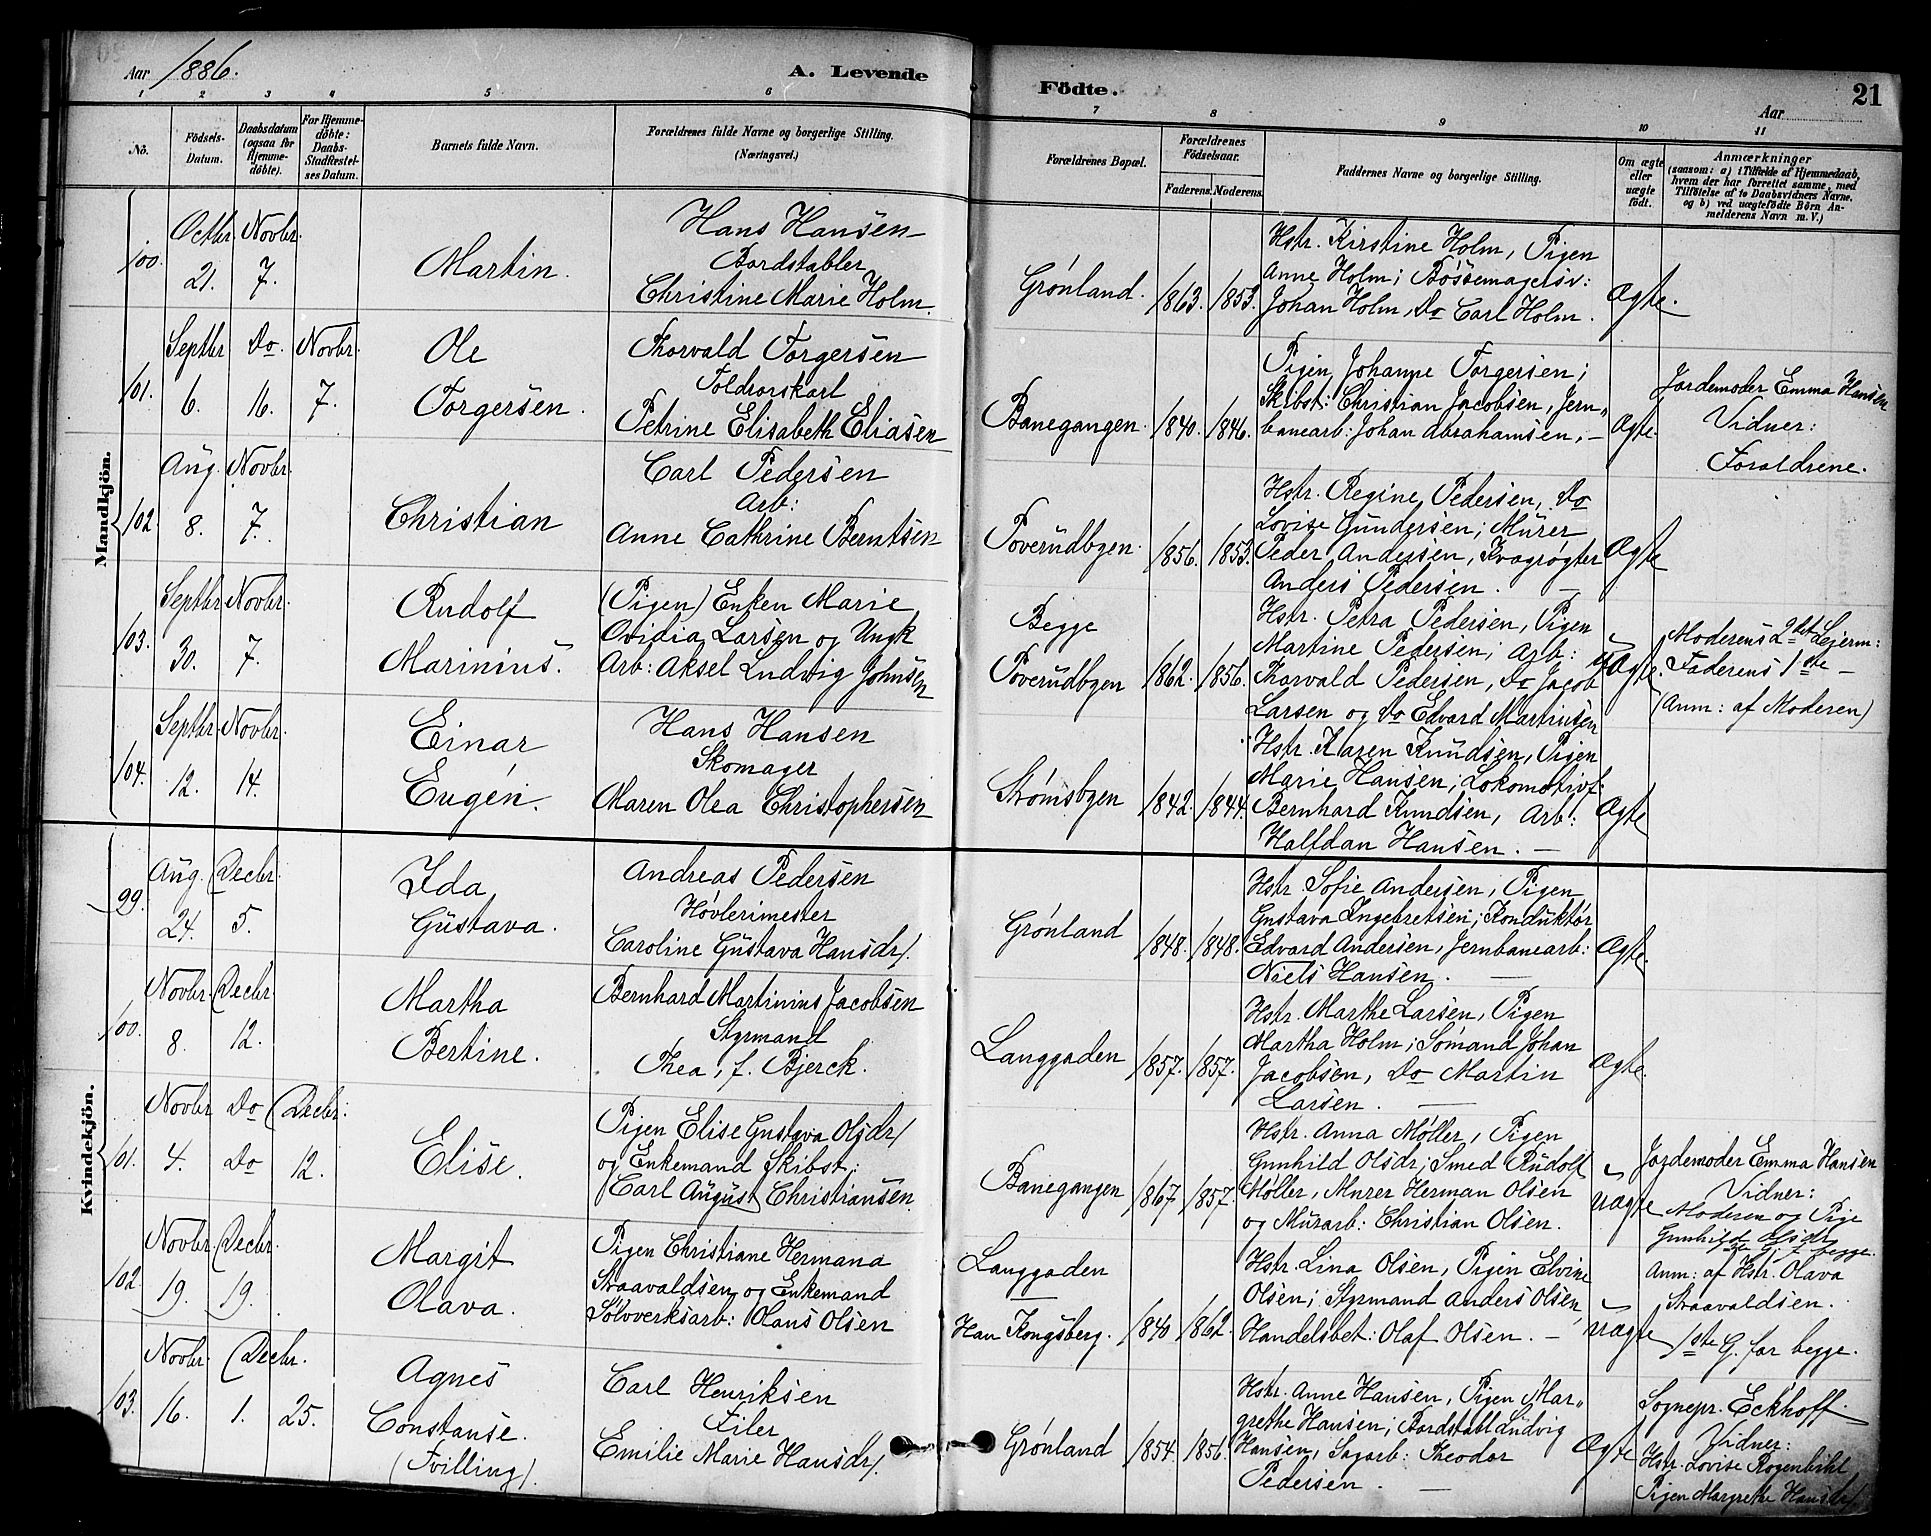 Aar 1886.
A. Levende
Födte.
Aar
21
1 2 3 4 5 6 7 8 9 10 11
No.
Födsels-Datum.
Daabsdatum (ogsaa for Hjemme-döbte).
For Hjemme-döbte: Daabs-Stadfæstel-ses Datum.
Barnets fulde Navn.
Forældrenes fulde Navne og borgerlige Stilling.
(Næringsvei.)
Forældrenes Bopæl.
Forældrenes Födselsaar.
Faderens. Moderens.
Faddernes Navne og borgerlige Stilling.
Om ægte eller uægte födt.
Anmærkninger
(saasom: a) i Tilfælde af Hjemmedaab, hvem der har forrettet samme, med Tilföielse af to Daabsvidners Navne, og b) ved uægtefödte Börn Anmelderens Navn m. V.)
Mandkjön.
100.
Octbr. 21.
Novbr. 7.
Martin.
Hans Hansen
Bordstabler
Christine Marie Holm.
Grønland.
1863. 1853.
Hstr. Kirstine Holm, Pigen
Anne Holm; Bössemagersv:
Johan Holm, Do Carl Holm.
Ægte.
101.
Septbr. 6.
Do. 16.
Novbr. 7.
Ole
Torgersen.
Thorvald Torgersen
Toldrorskarl
Petrine Elisabeth Eliasen
Banegangen.
1840. 1846.
Pigen Johanne Torgersen;
Skibst: Christian Jacobsen, Jern-
banearb: Johan Abrahamsen. —
Ægte.
Jordemoder Emma Hansen
Vidner:
Forældrene.
102.
Aug. 8.
Novbr. 7.
Christian
Carl Pedersen
Arb:
Anne Cathrine Berntsen
Toverudbgen.
1856. 1853.
Hstr. Regine Pedersen, Do
Lovise Gundersen; Murer
Peder Andersen, Kvægrøgter
Anders Pedersen. —
Ægte
103.
Septbr. 30.
Novbr. 7.
Rudolf
Marinius.
(Pigen) Enken Marie
Ovidia Larsen og Ungk
Arb: Aksel Ludvig Johnsen
Begge
Toverudbgen
1862. 1856.
Hstr. Petra Pedersen, Pigen
Martine Pedersen; Arb:
Thorvald Pedersen, Do Jacob
Larsen og Do Edvard Martinsen
uÆgte.
Moderens 2det Lejerm:
Faderens 1ste —
(Anm: af Moderen)
104.
Septbr. 12.
Novbr. 14.
Einar
Eugén.
Hans Hansen
Skomager
Maren Olea Christophersen
Strømsbgen
1842. 1844.
Hstr. Karen Knudsen, Pigen
Marie Hansen; Lokomotivf:
Bernhard Knudsen, Arb:
Halfdan Hansen. —
Ægte
Kvindekjön.
99.
Aug. 24.
Decbr. 5.
Ida
Gustava.
Andreas Pedersen
Høvlerimester
Caroline Gustava Hansdr.
Grønland
1848. 1848.
Hstr. Sofie Andersen, Pigen
Gustava Engebretsen; Konduktør
Edvard Andersen, Jernbanearb:
Niels Hansen. —
Ægte.
100.
Novbr. 8.
Decbr. 12.
Martha
Bertine.
Bernhard Martinius Jacobsen
Styrmand
Thea, f. Bjerck.
Langgaden
1857. 1857.
Hstr. Marthe Larsen, Pigen
Martha Holm; Sømand Johan
Jacobsen, Do Martin
Larsen. —
Ægte.
101.
Novbr 4.
Do Do
Decbr: 12.
Elise.
Pigen Elise Gustava Olsdr.
og Enkemand Skibst:
Carl August Christiansen.
Banegangen
1867 1857.
Hstr. Anna Møller, Pigen
Gunhild Olsdr; Smed Rudolf
Møller, Murer Herman Olsen
og Murarb: Christian Olsen.
uægte
Jordemoder Emma Hansen
Vidner:
Moderen og Pige
Gunhild Olsdr
begge.
102.
Novbr. 19.
Decbr. 19.
Margit
Olava.
Pigen Christiane Hermana
Straavaldsen og Enkemand
Sølvverksarb: Olaus Olsen
Langgaden
Han Kongsberg.
1840 1862.
Hstr. Lina Olsen, Pigen Elvine
Olsen; Styrmand Anders Olsen,
Handelsbet: Olaf Olsen. —
uægte
Anm: af Hstr. Olava
Straavaldsen.
1ste G. for begge.
103.
Novbr. 16.
Decbr. 1. 25.
Agnes
Constanse.
(Tvilling).
Carl Henriksen
Filer
Emilie Marie Hansdr.
Grønland
1854. 1856.
Hstr. Anne Hansen, Pigen Mar-
grethe Hansen; Bordstabl Ludvig
Hansen, Sagarb: Theodor
Pedersen. —
Ægte
Sognepr. Eckhoff.
Vidner:
Hstr. Lovise
Pigen Margrethe Hansdr.